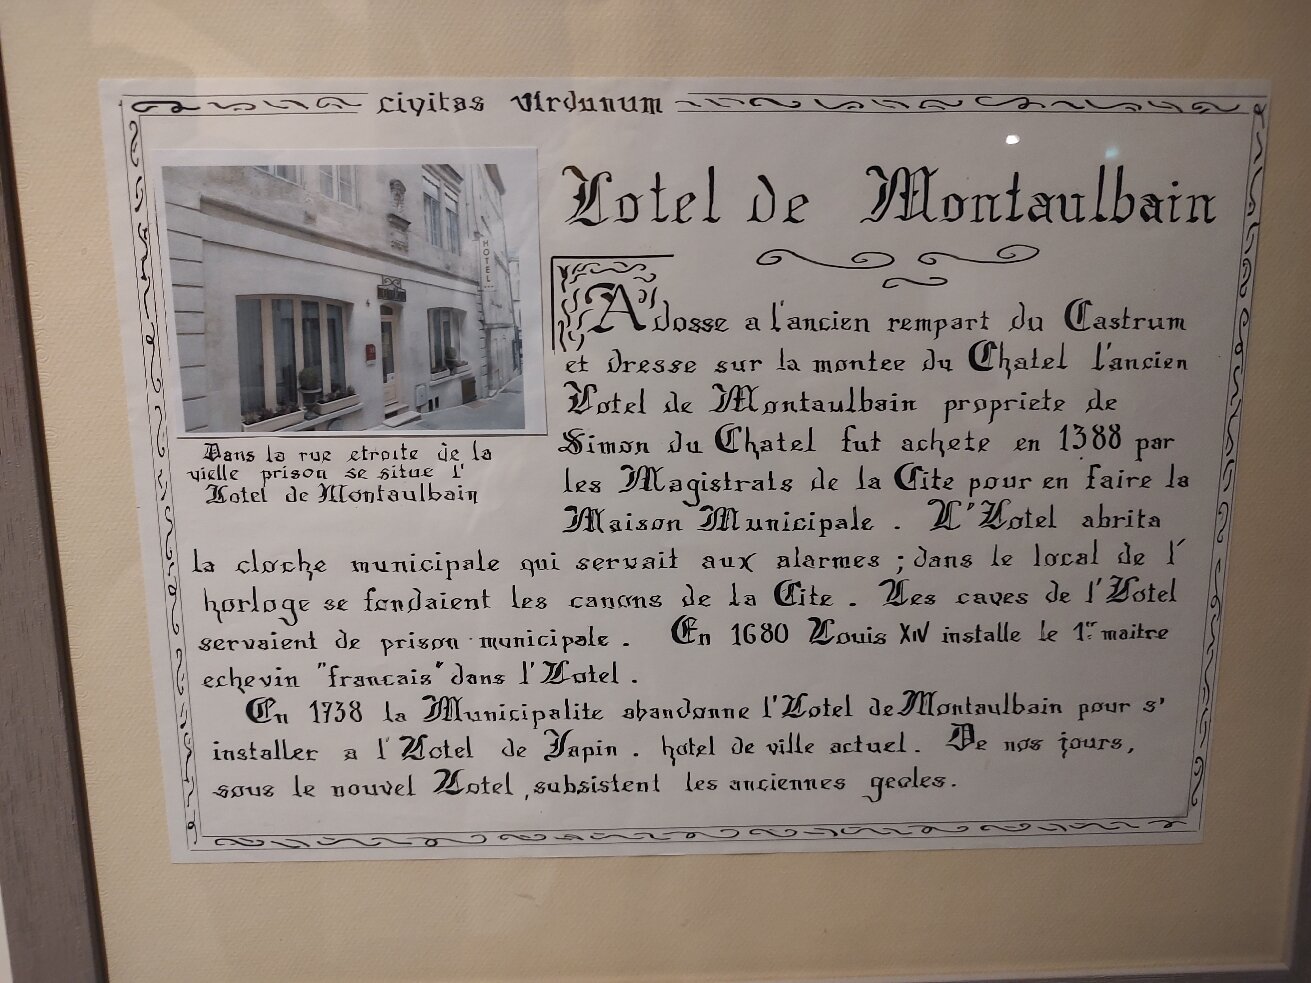 civitas virdunum
Hotel de Montaulbain
HOTEL
Adosse a l'ancien rempart du Castrum
et dresse sur la montee du Chatel l'ancien
Hotel de Montaulbain propriete de
Simon du Chatel fut achete en 1388 par
les Magistrats de la Cite pour en faire la
Maison Municipale . L'Hotel abrita
la cloche municipale qui servait aux alarmes ; dans le local de l'
horloge se fondaient les canons de la Cite . Les caves de l'Hotel
servaient de prison municipale . En 1680 Louis XIV installe le 1er maitre
echevin "francais" dans l'Hotel .
En 1738 la Municipalite abandonne l'Hotel de Montaulbain pour s'
installer a l'Hotel de Japin . hotel de ville actuel . De nos jours,
sous le nouvel Hotel , subsistent les anciennes geoles .
Dans la rue etroite de la
vielle prison se situe l'
Hotel de Montaulbain